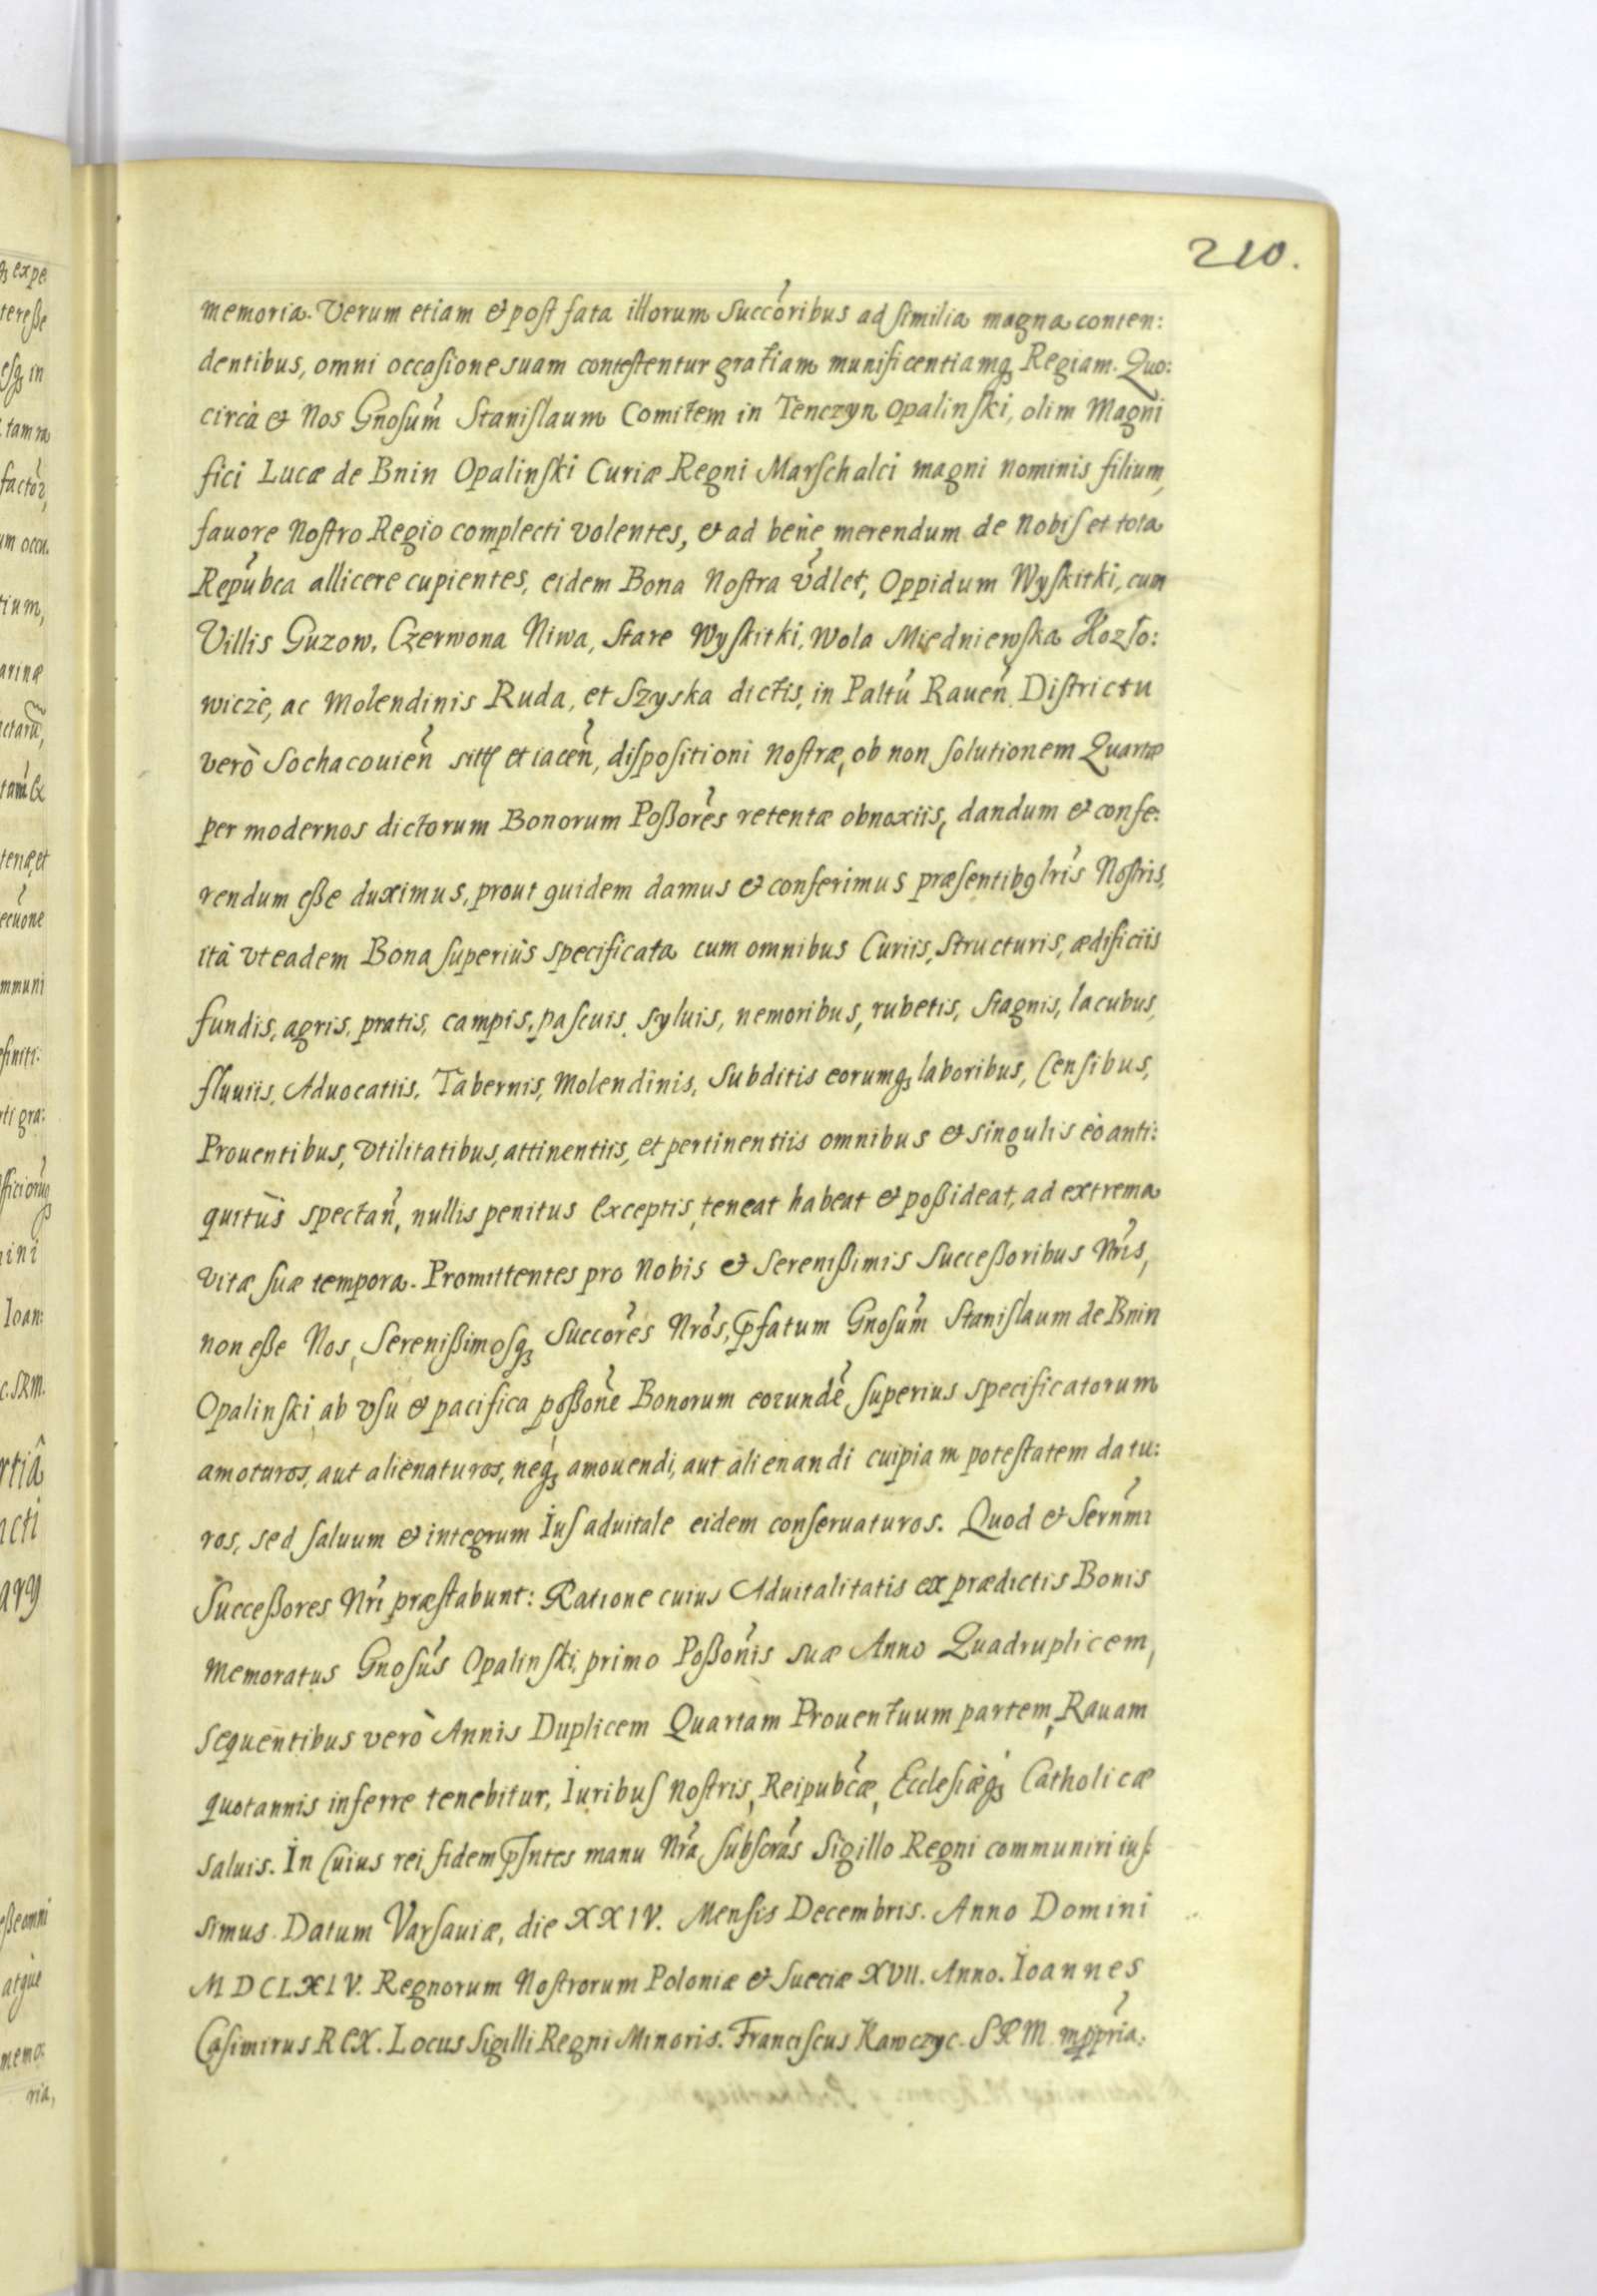 210.
memoria. Verum etiam & post fata illorum Succoribus ad similia magna conten:
dentibus, omni occasione suam contestentur gratiam munificentiamq3 Regiam. Quo:
circà & Nos Gnosum Stanislaum Comitem in Tenczyn Opalinski, olim Magni
fici Lucæ de Bnin Opalinski Curiæ Regni Marschalci magni nominis filium,
fauore Nostro Regio complecti volentes, & ad bene merendum de Nobis et tota
Repubca allicere cupientes, eidem Bona Nostra vdlet, Oppidum Wyskitki, cum
Villis Guzow, Czerwona Niwa, Stare Wyskitki, Wola Miedniewska Kozło:
wicze, ac Molendinis Ruda, et Szyska dictis, in Paltu Rauen Districtu
verò Sochacouien sitis et iacen, dispositioni Nostræ, ob non solutionem Quartæ
per modernos dictorum Bonorum Poßores retentæ obnoxiis, dandum & confe:
rendum eße duximus, prout quidem damus & conferimus præsentibg lris Nostris,
ità vt eadem Bona superiùs specificata cum omnibus Curiis, Structuris, ædificiis
fundis, agris, pratis, campis, pascuis, syluis, nemoribus, rubetis, Stagnis, lacubus,
fluuiis, Aduocatiis, Tabernis, Molendinis, Subditis eorumq3 laboribus, Censibus,
Prouentibus, vtilitatibus, attinentiis, et pertinentiis omnibus & singulis eò anti:
quitùs spectan, nullis penitus exceptis, teneat habeat & poßideat, ad extrema
vitæ suæ tempora. Promittentes pro Nobis & Serenißimis Succeßoribus Nris,
non eße Nos, Serenißimosq3 Succores Nros, Pfatum Gnosum Stanislaum de Bnin
Opalinski ab vsu & pacifica poßone Bonorum eorunde superius specificatorum
amoturos, aut alienaturos, neq3 amouendi, aut alienandi cuipiam potestatem datu:
ros, sed saluum & integrum Ius aduitale eidem conseruaturos. Quod & Sernmi
Succeßores Nri præstabunt: Ratione cuius Aduitalitatis ex prædictis Bonis
memoratus Gnosus Opalinski, primo Poßonis suæ Anno Quadruplicem,
sequentibus verò Annis Duplicem Quartam Prouentuum partem, Rauam
quotannis inferre tenebitur, Iuribus Nostris, Reipubcæ, Ecclesiæq3 Catholicæ
saluis. In Cuius rei fidem Psntes manu Nra subscras Sigillo Regni communiri ius:
simus. Datum Varsauiæ, die XXIV. Mensis Decembris. Anno Domini
MDCLXIV. Regnorum Nostrorum Poloniæ & Sueciæ XVII. Anno. Ioannes
Casimirus REX. Locus Sigilli Regni Minoris. Franciscus Kawczyc. SRM mppria.